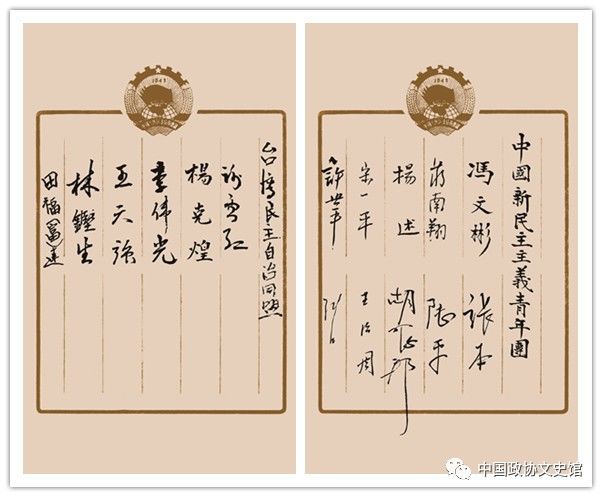 1949
台灣民主自治同盟
謝雪红
楊克煌
李伟光
王天強
林鏗生
田富達
1949
中國新民主主義青年團
馮文彬 張本
蔣南翔 陸平
楊述 胡耀邦
宋一平 王治周
許世平
中国政协文史馆